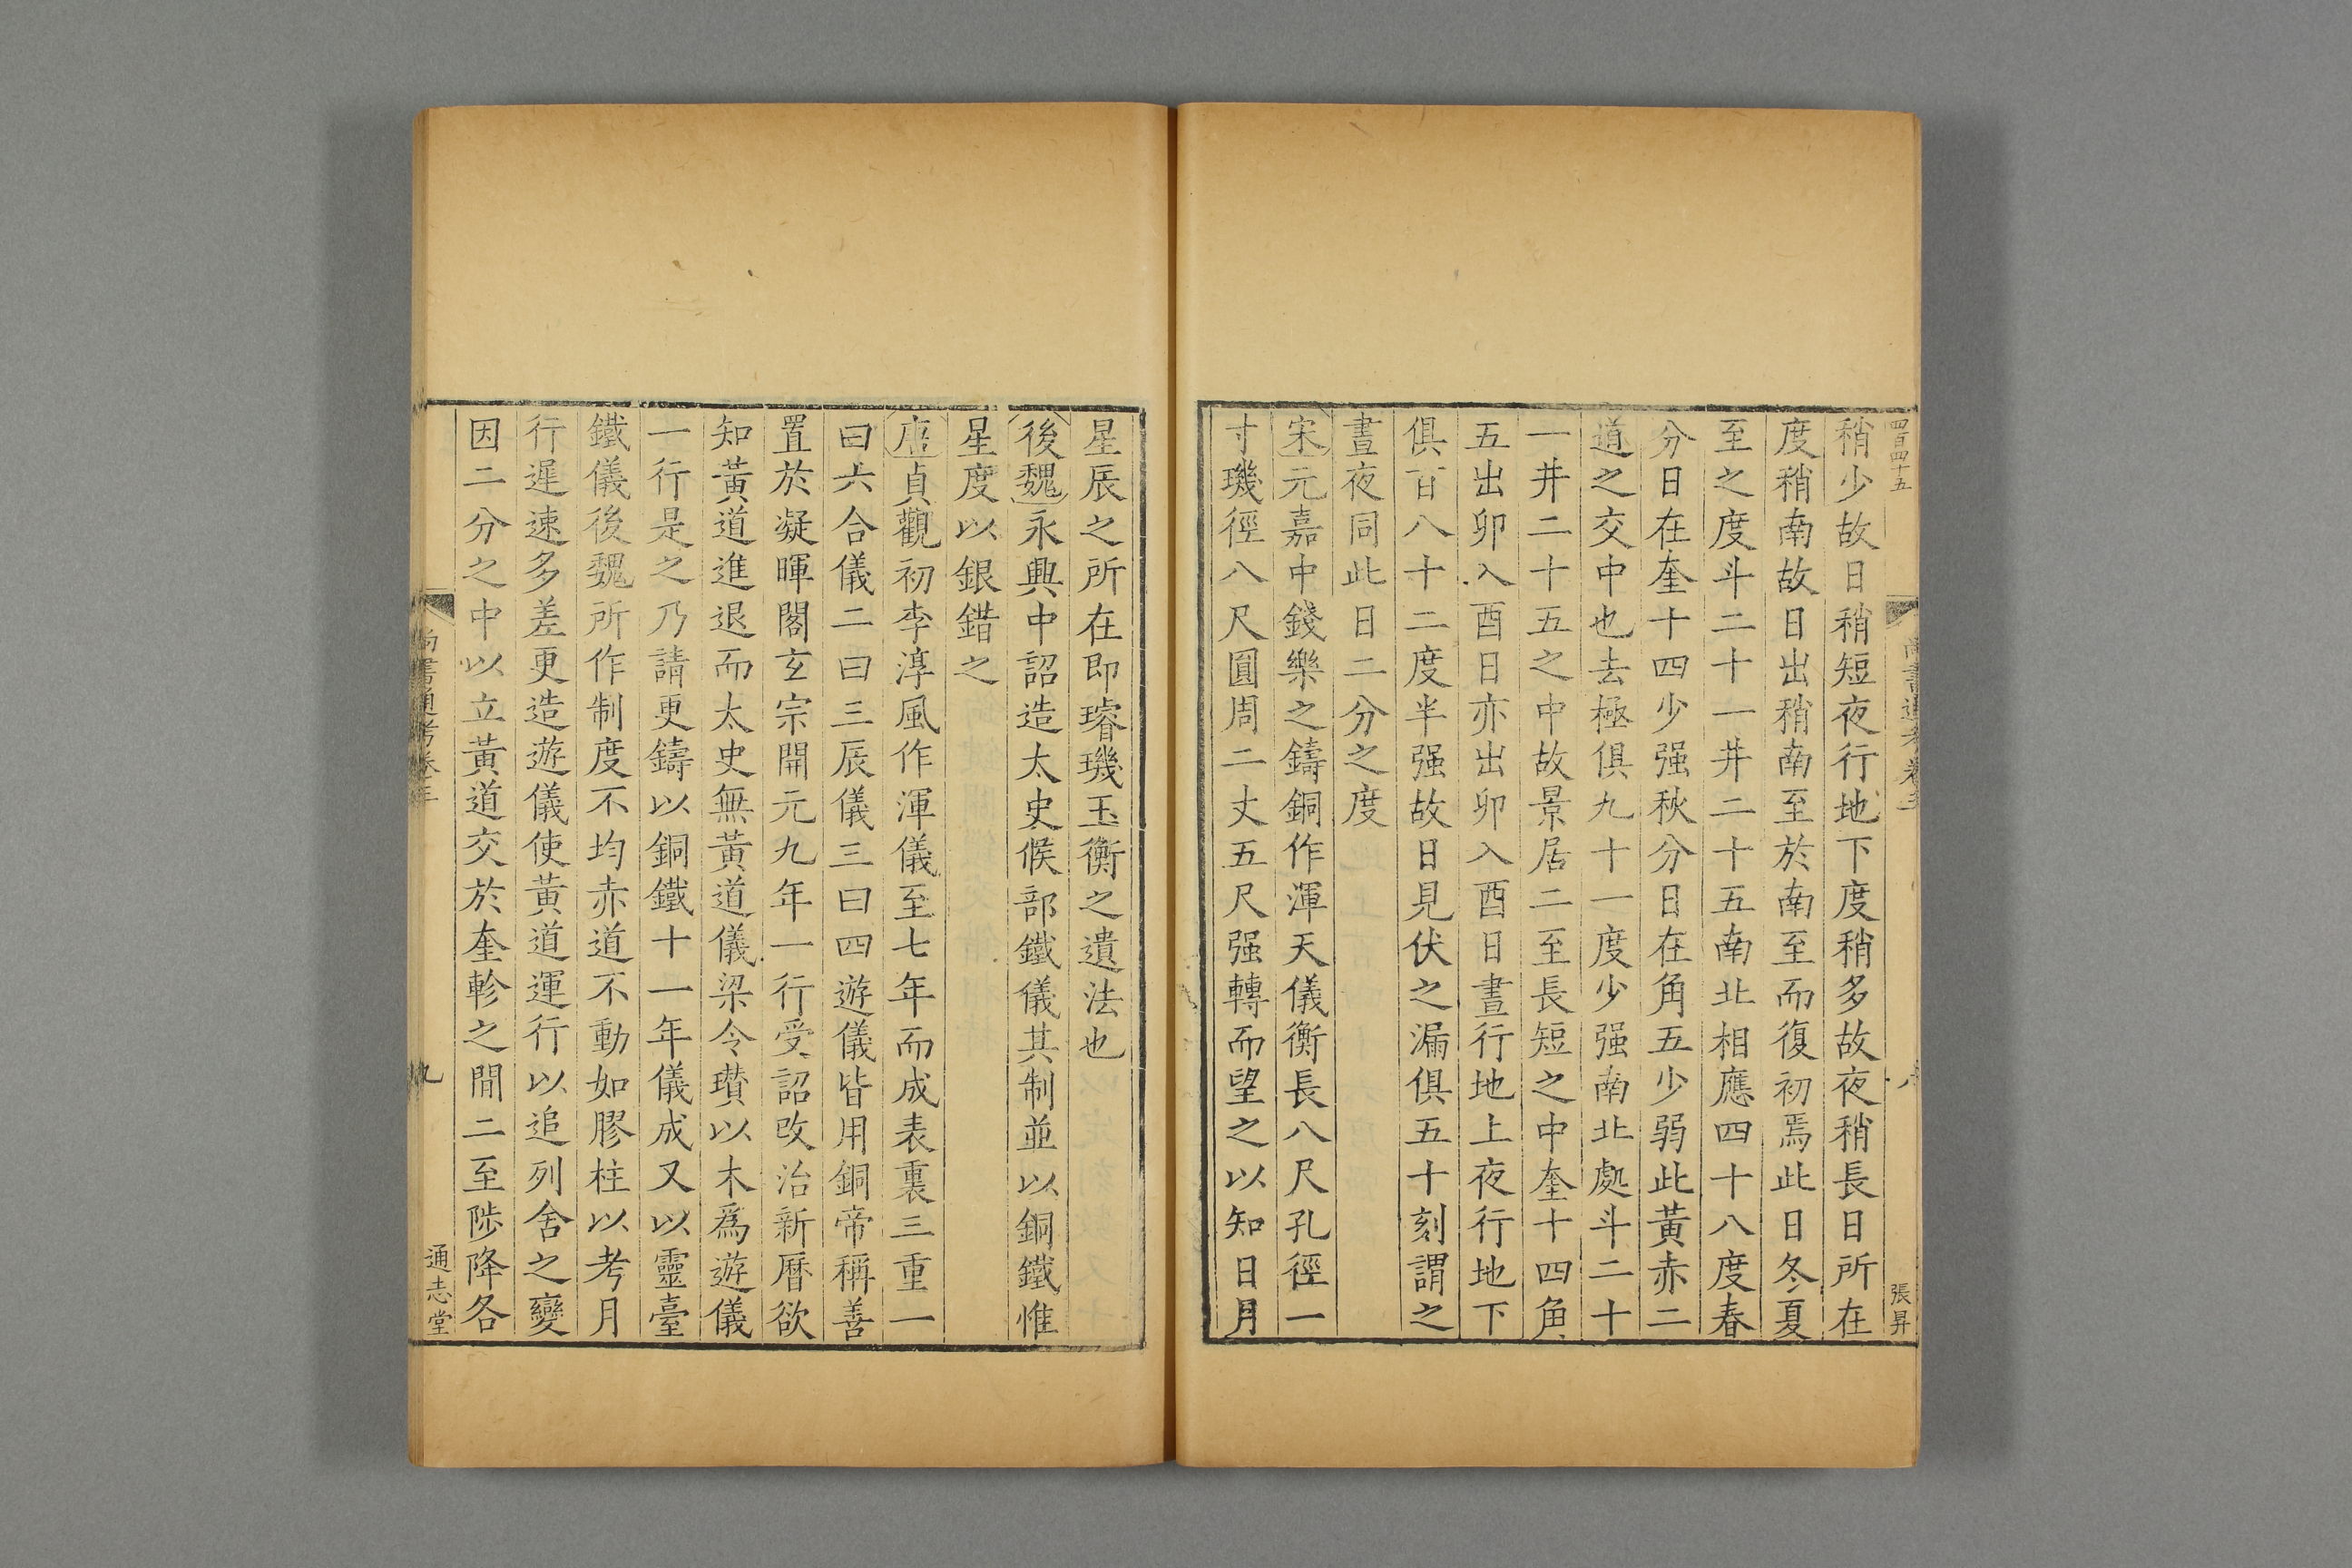 四百四十五
尚書通考卷三
八
張昇
稍少故日稍短夜行地下度稍多故夜稍長日所在
度稍南故日出稍南至於南至而復初焉此日冬夏
至之度斗二十一井二十五南北相應四十八度春
分日在奎十四少强秋分日在角五少弱此黃赤二
道之交中也去極俱九十一度少强南北處斗二十
一井二十五之中故景居二至長短之中奎十四角
五出卯入酉日亦出卯入酉日晝行地上夜行地下
俱百八十二度半强故日見伏之漏俱五十刻謂之
晝夜同此日二分之度
宋元嘉中錢樂之鑄銅作渾天儀衡長八尺孔徑一
寸璣徑八尺圓周二丈五尺强轉而望之以知日月
星辰之所在即璿璣玉衡之遺法也
後魏永興中詔造太史候部鐵儀其制並以銅鐵惟
星度以銀錯之
唐貞觀初李淳風作渾儀至七年而成表裏三重一
曰六合儀二曰三辰儀三曰四遊儀皆用銅帝稱善
置於凝暉閣玄宗開元九年一行受詔改治新曆欲
知黃道進退而太史無黃道儀梁令瓚以木爲遊儀
一行是之乃請更鑄以銅鐵十一年儀成又以靈臺
鐵儀後魏所作制度不均赤道不動如膠柱以考月
行遲速多差更造遊儀使黃道運行以追列舍之變
因二分之中以立黃道交於奎軫之間二至陟降各
尚書通考卷三
九
通志堂